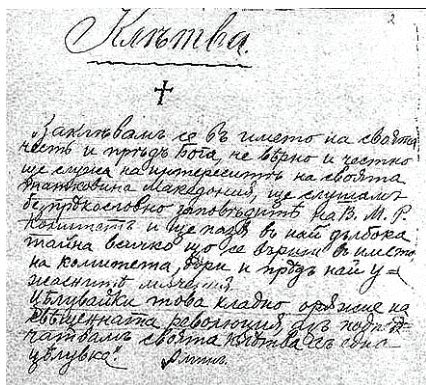 2
Клѣтва.
†
Заклѣвамъ се въ името на своята
честь и прѣдъ Бога, че вѣрно и честно
ще служа на интереситѣ на своята
татковина Македония, ще слушамъ
безпрѣкословно заповѣдитѣ на В. М. Р.
Комитетъ и ще пазя въ най дълбока
тайна всичко що се върши въ името
на комитета, бори и прѣдъ най у=
жаснитѣ мѫчения.
Цѣлувайки това хладно орѫжие на
свѣщенната революция, азъ подпе
чатвамъ своята клѣтва съ една
цѣлувка!
Аминъ.